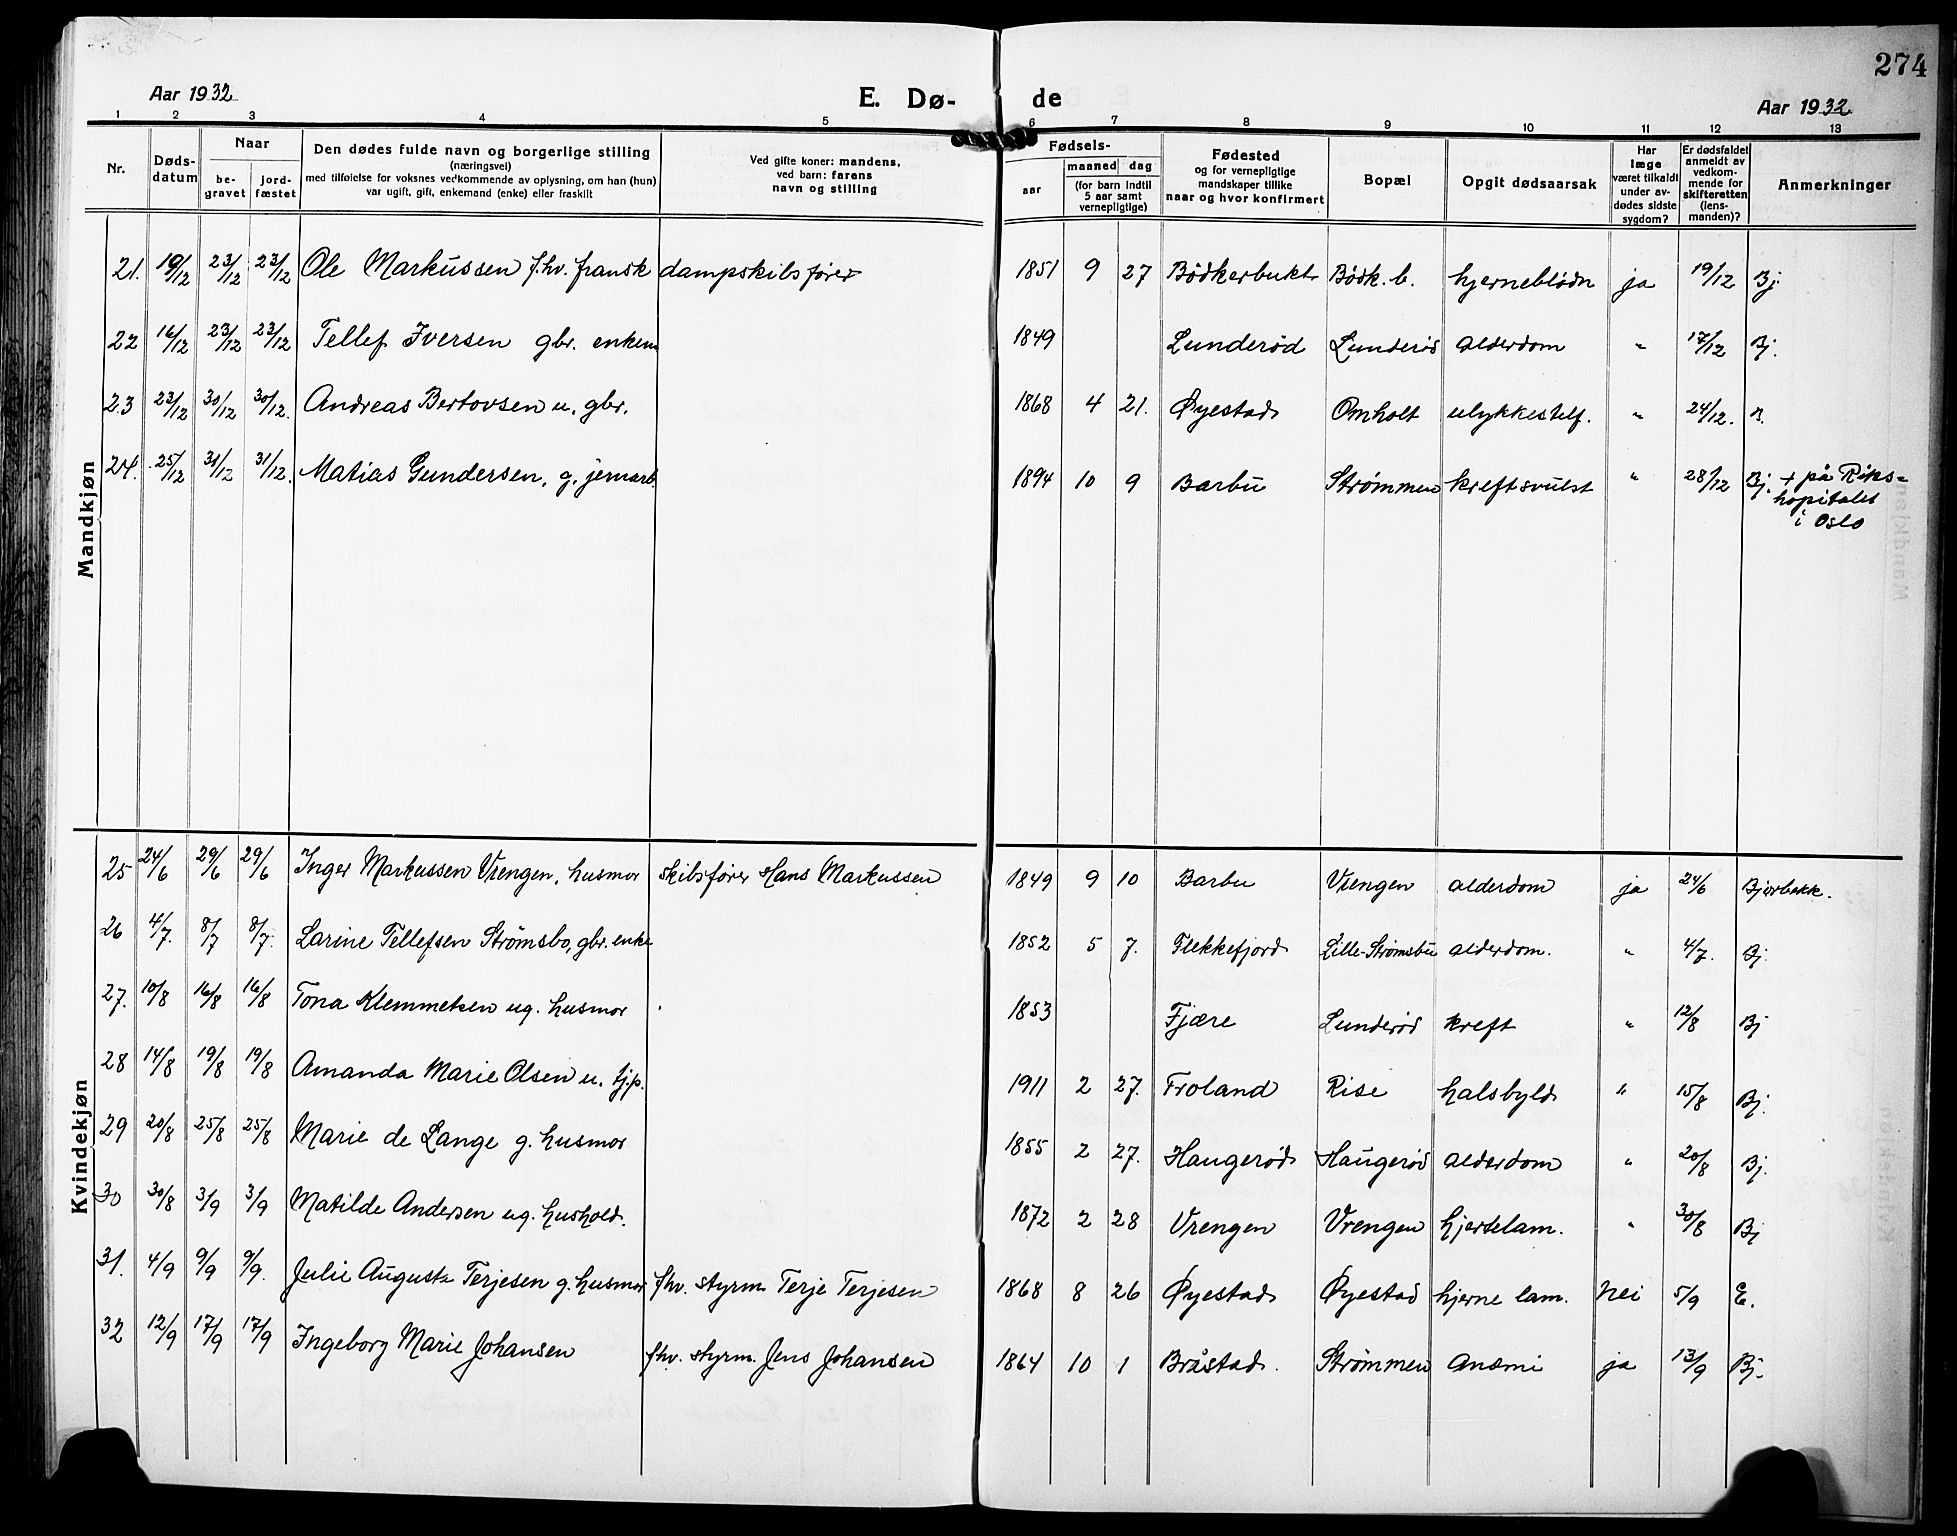 274
Aar 1932 E. Dø- de Aar 1932
1 2 3 4 5 6 7 8 9 10 11 12 13
Nr.
Døds-
datum
Naar
be-
gravet
jord-
fæstet
Den dødes fulde navn og borgerlige stilling
(næringsvei)
med tilføielse for voksnes vedkommende av oplysning, om han (hun)
var ugift, gift, enkemand (enke) eller fraskilt
Ved gifte koner: mandens,
ved barn: farens
navn og stilling
Fødsels-
aar
maaned dag
(for barn indtil
5 aar samt
vernepligtige)
Fødested
og for vernepligtige
mandskaper tillike
naar og hvor konfirmert
Bopæl
Opgit dødsaarsak
Har
læge
været tilkaldt
under av-
dødes sidste
sygdom?
Er dødsfaldet
anmeldt av
vedkom-
mende for
skifteretten
(lens-
manden)?
Anmerkninger
Mandkjøn
21. 19/12 23/12 23/12 Ole Markussen f.hv. fransk dampskibsfører 1851 9 27 Bödkerbukt Bödk. b. hjerneblödn ja 19/12 Bj
22 16/12 23/12 23/12 Tellef Iversen gbr. enkem 1849 Lunderød Lunderød alderdom " 17/12 Bj.
23 23/12 30/12 30/12. Andreas Bertovsen u. gbr. 1868 4 21. Øyestad Omholt ulykkestilf. " 24/12.
24. 25/12 31/12 31/12. Matias Gundersen, g. jernarb. 1894 10 9 Barbu Strømmen kreftsvulst " 28/12 Bj. + på Riks-
hopitalet
i Oslo
Kvindekjøn
25 24/6 29/6 29/6 Inger Markussen Vrengen, husmor skibsfører Hans Markussen 1849 9 10 Barbu Vrengen alderdom ja 24/6 Bjorbekk.
26 4/7. 8/7 8/7. Larine Tellefsen Strømsbo, gbr. enke 1852 5 7. Flekkefjord Lille-Strømsbu alderdom. " 4/7. Bj.
27. 10/8 16/8 16/8 Tona Klemmetsen ug. husmor 1853 Fjære Lunderød kreft " 12/8 Bj
28 14/8 19/8 19/8 Amanda Marie Olsen u. tj.p. 1911 2 27. Froland Rise halsbyld " 15/8 Bj.
29 20/8 25/8 25/8 Marie de Lange g. husmor 1855 2 27. Haugerød Haugerød alderdom " 20/8 Bj.
30 30/8 3/9 3/9 Matilde Andersen ug. hushold. 1872 2 28 Vrengen Vrengen hjertelam. " 30/8 Bj
31. 4/9 9/9 9/9. Julie Augusta Terjesen g. husmor fhv. styrm. Terje Terjesen 1868 8 26 Øyestad Øyestad hjerne lam. nei 5/9 E.
32 12/9 17/9 17/9 Ingeborg Marie Johansen fhv. styrm. Jens Johansen 1864 10 1 Bråstad. Strømmen Anæmi ja 13/9 Bj.